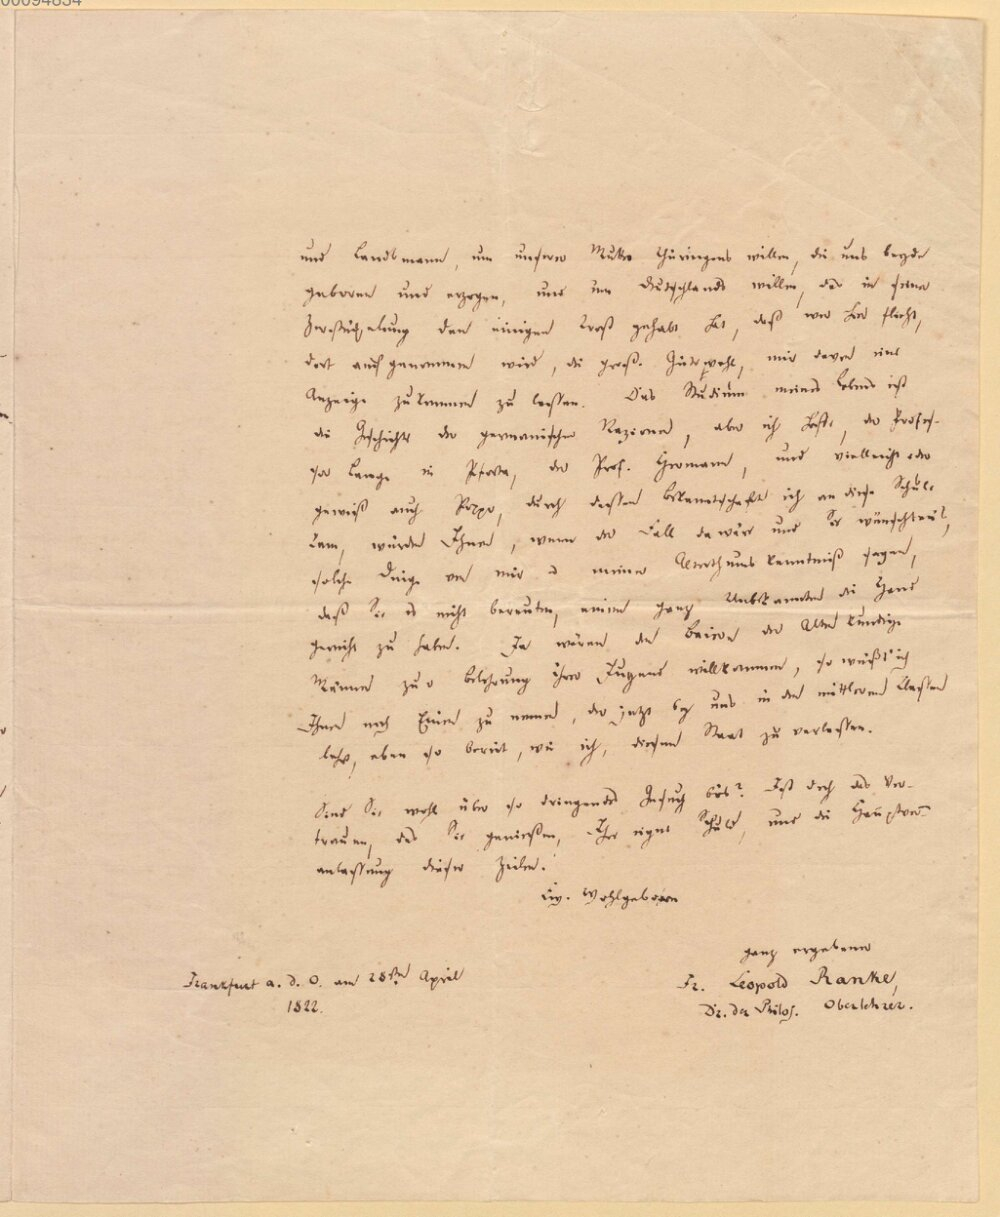 und Landsmann, um unsrer Mutter Thüringens willen, die uns beyde
geboren und erzogen, und um Deutschlands willen, das in seiner
Zerstückelung den einigen Trost gehabt hat, daß wer hier flieht,
dort aufgenommen wird, die große Güte wohl, mir davon eine
Anzeige zukommen zu lassen. Das Studium meines Lebens ist
die Geschichte der germanischen Nazionen, aber ich hoffe, der Profes-
sor Lange in Pforta, der Prof. Hermann, und vielleicht oder
gewiß auch Poppo, durch dessen Bekanntschaft ich an diese Schule
kam, würden Ihnen, wenn der Fall da wäre und Sie wünschten es,
solche Dinge von mir u meiner Alterthumskenntniß sagen,
daß Sie es nicht bereuten, einem ganz Unbekannten die Hand
gereicht zu haben. Ja wären den Baiern der Alten kundige
Männer zur Belehrung ihrer Jugend willkommen, so wüßt' ich
Ihnen noch Einen zu nennen, der jetzt bey uns in den mittleren Classen
lehrt, eben so bereit, wie ich, diesen Staat zu verlassen.
Sind Sie wohl über so dringendes Gesuch bös? Ist doch das Ver-
trauen, das Sie genießen, Ihre eigne Schuld, und die Hauptver-
anlassung dieser Zeilen.
Ew. Wohlgeboren
ganz ergebener
Fr. Leopold Ranke,
Dr. der Philos. Oberlehrer.
Frankfurt a. d. O. am 28sten April
1822.